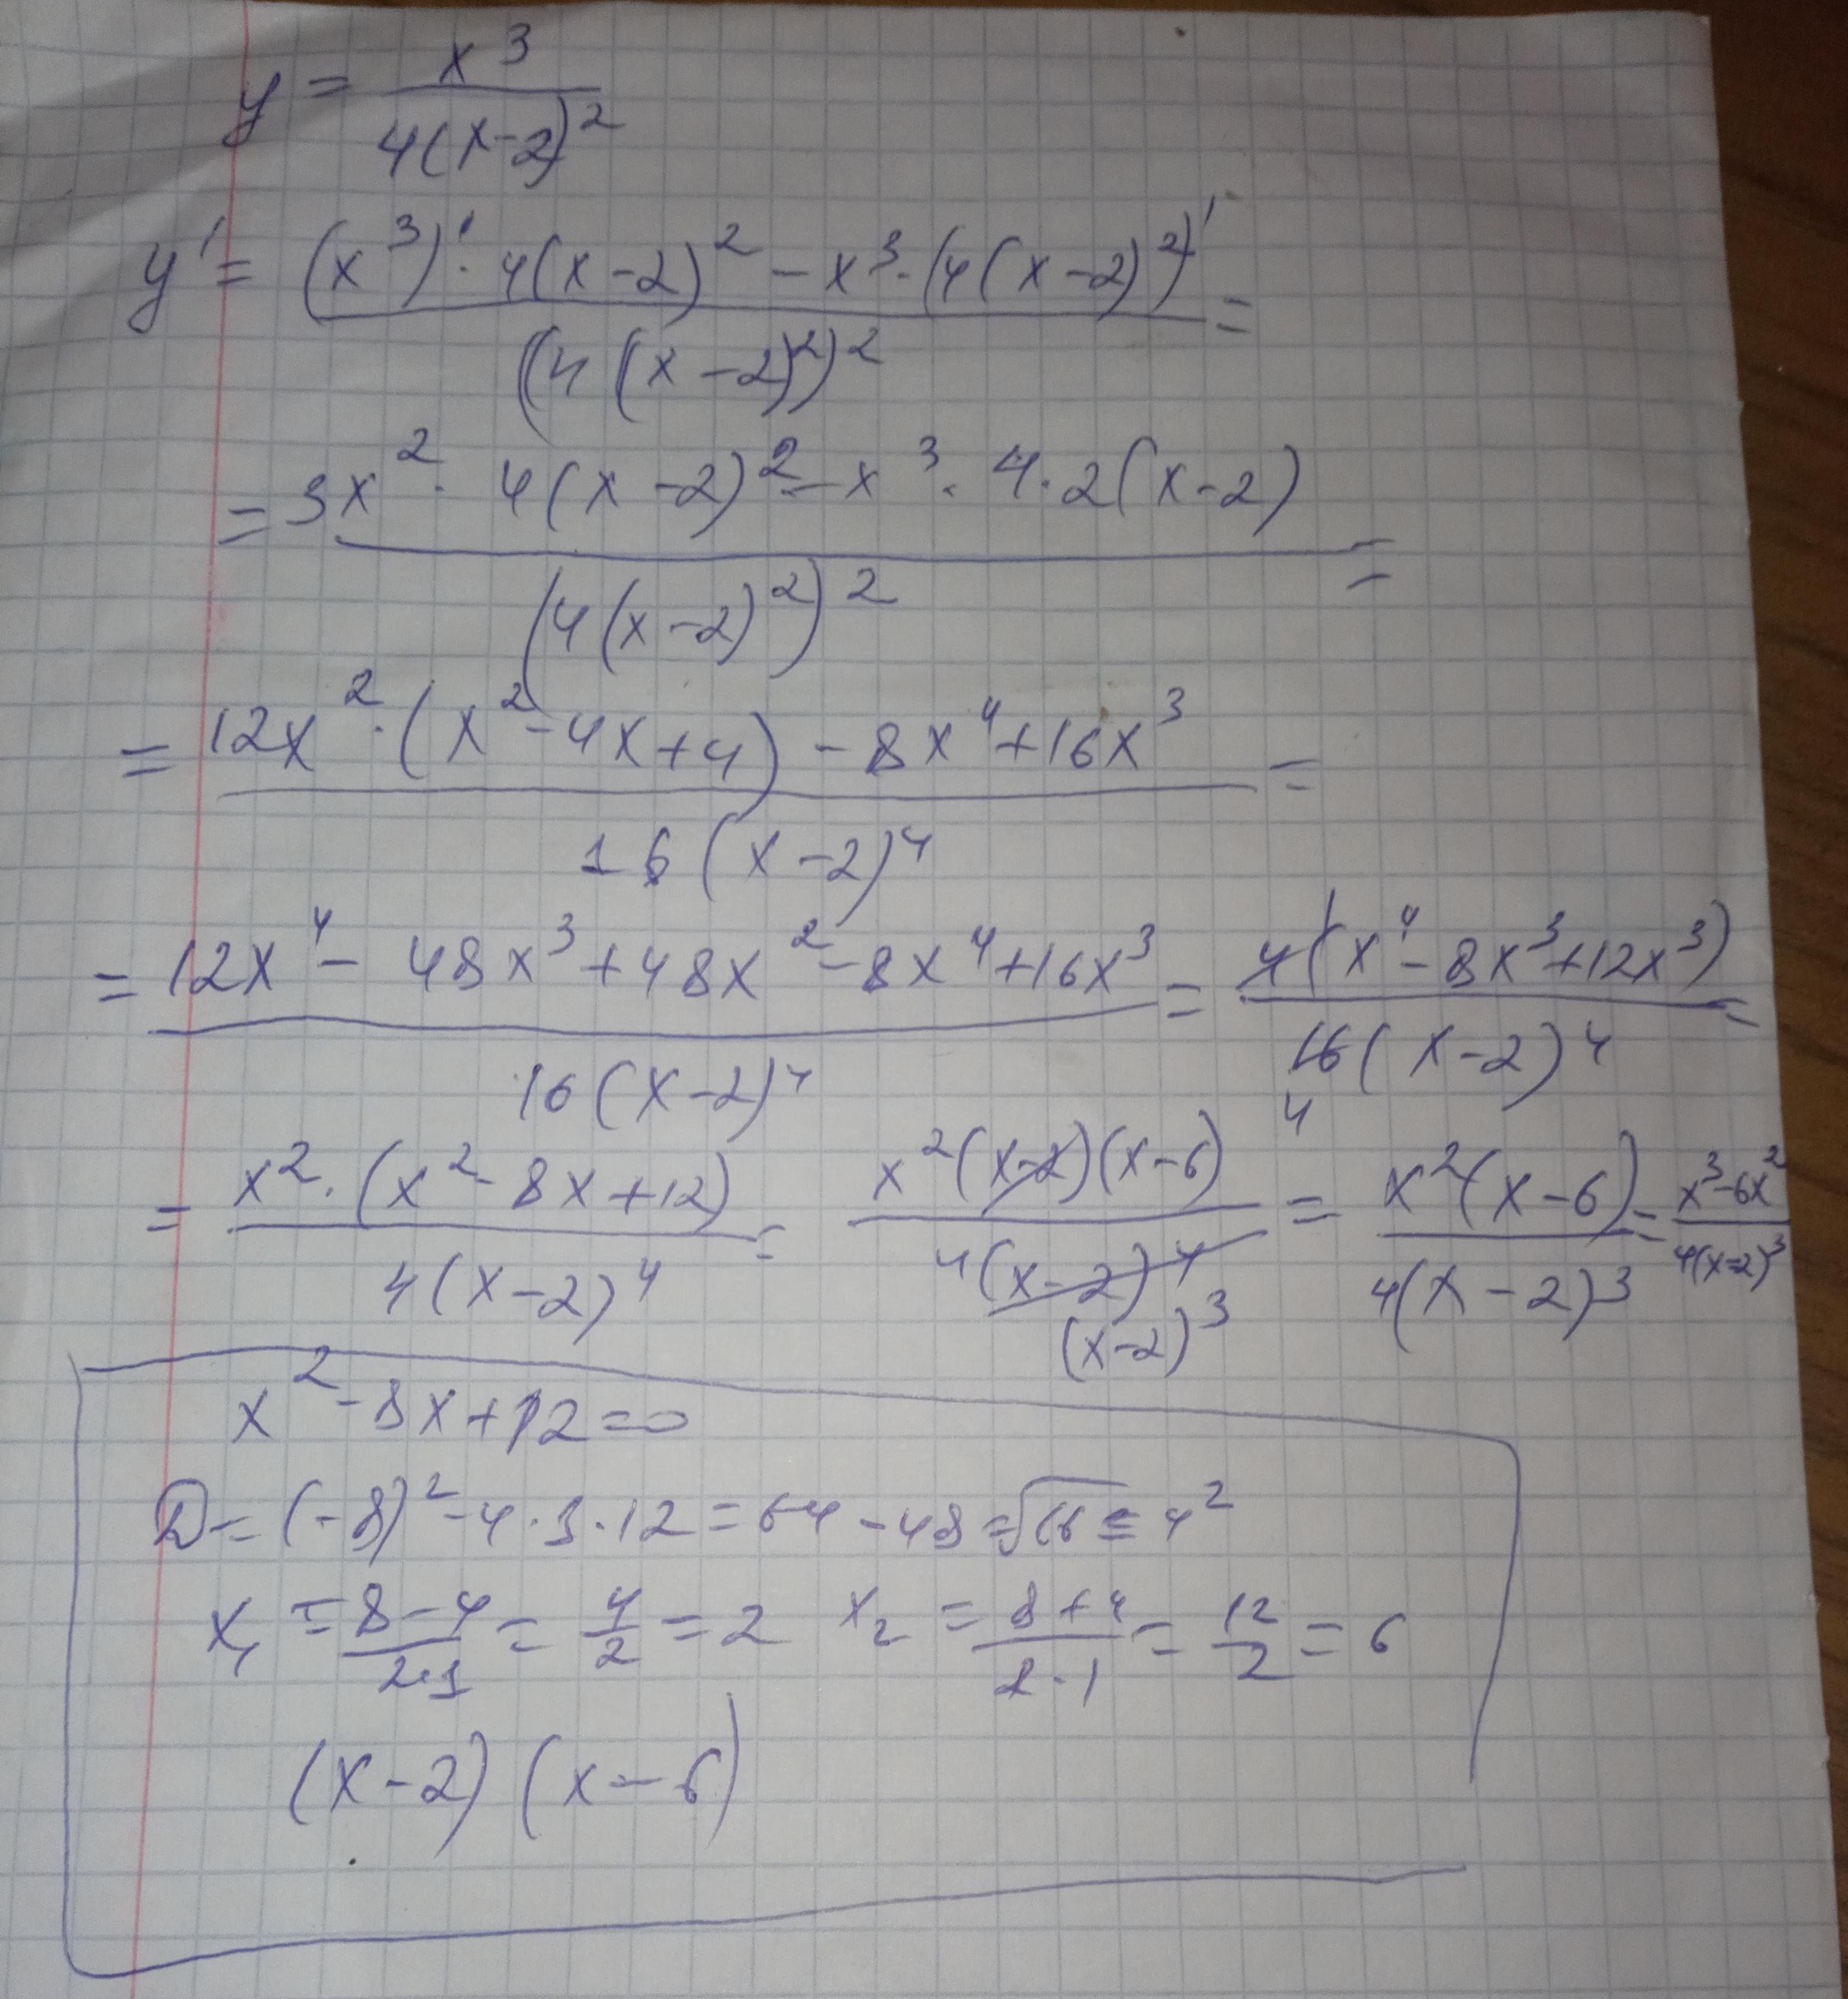 y = x³ / 4(x-2)²
y' = (x³)' · 4(x-2)² - x³ · (4(x-2)²)' / (4(x-2)²)² =
= 3x² · 4(x-2)² - x³ · 4 · 2(x-2) / (4(x-2)²)² =
= 12x² · (x² - 4x + 4) - 8x⁴ + 16x³ / 16(x-2)⁴ =
= 12x⁴ - 48x³ + 48x² - 8x⁴ + 16x³ / 16(x-2)⁴ = 4(x⁴ - 8x³ + 12x³) / 16(x-2)⁴ =
= x² · (x² - 8x + 12) / 4(x-2)⁴ = x²(x-2)(x-6) / 4(x-2)⁴ (x-2)³ = x²(x-6) / 4(x-2)³ = x³ - 6x² / 4(x-2)³
x² - 8x + 12 = 0
D = (-8)² - 4 · 1 · 12 = 64 - 48 = √16 = 4²
x₁ = 8-4 / 2·1 = 4/2 = 2 x₂ = 8+4 / 2·1 = 12/2 = 6
(x-2) (x-6)